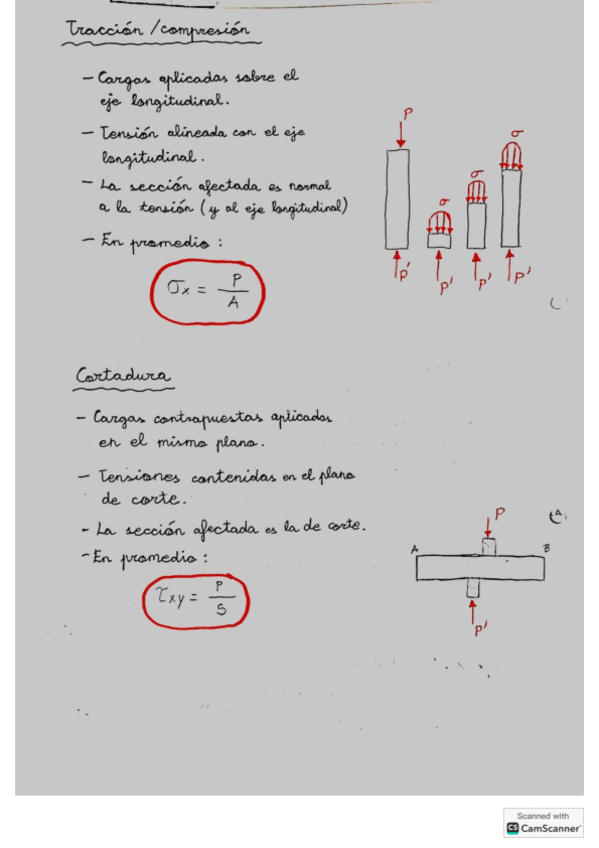 Tracción / compresión
- Cargas aplicadas sobre el
eje longitudinal.
- Tensión alineada con el eje
longitudinal.
- La sección afectada es normal
a la tensión (y al eje longitudinal)
- En promedio :
σx = P / A
P
σ
σ
σ
P'
P'
P'
P'
Cortadura
- Cargas contrapuestas aplicadas
en el mismo plano.
- Tensiones contenidas en el plano
de corte.
- La sección afectada es la de corte.
- En promedio :
τxy = P / S
P
A
B
P'
Scanned with
CS CamScanner